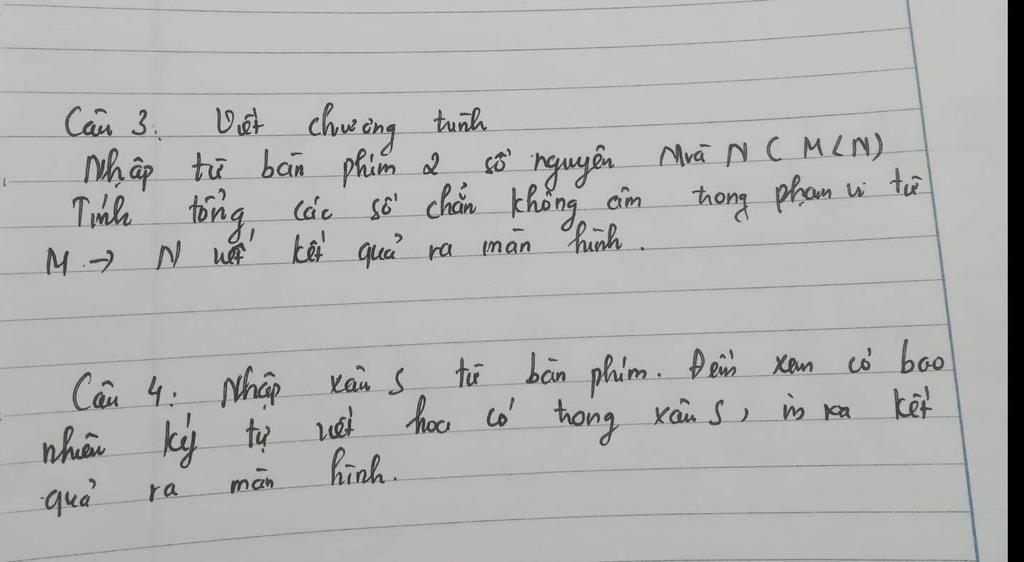 Câu 3. Viết chương trình
Nhập từ bàn phím 2 số nguyên M và N (M<N)
Tính tổng các số chẵn không âm trong phạm vi từ
M → N viết kết quả ra màn hình.
Câu 4. Nhập xâu S từ bàn phím. Đếm xem có bao
nhiêu ký tự viết hoa có trong xâu S, in ra kết
quả ra màn hình.